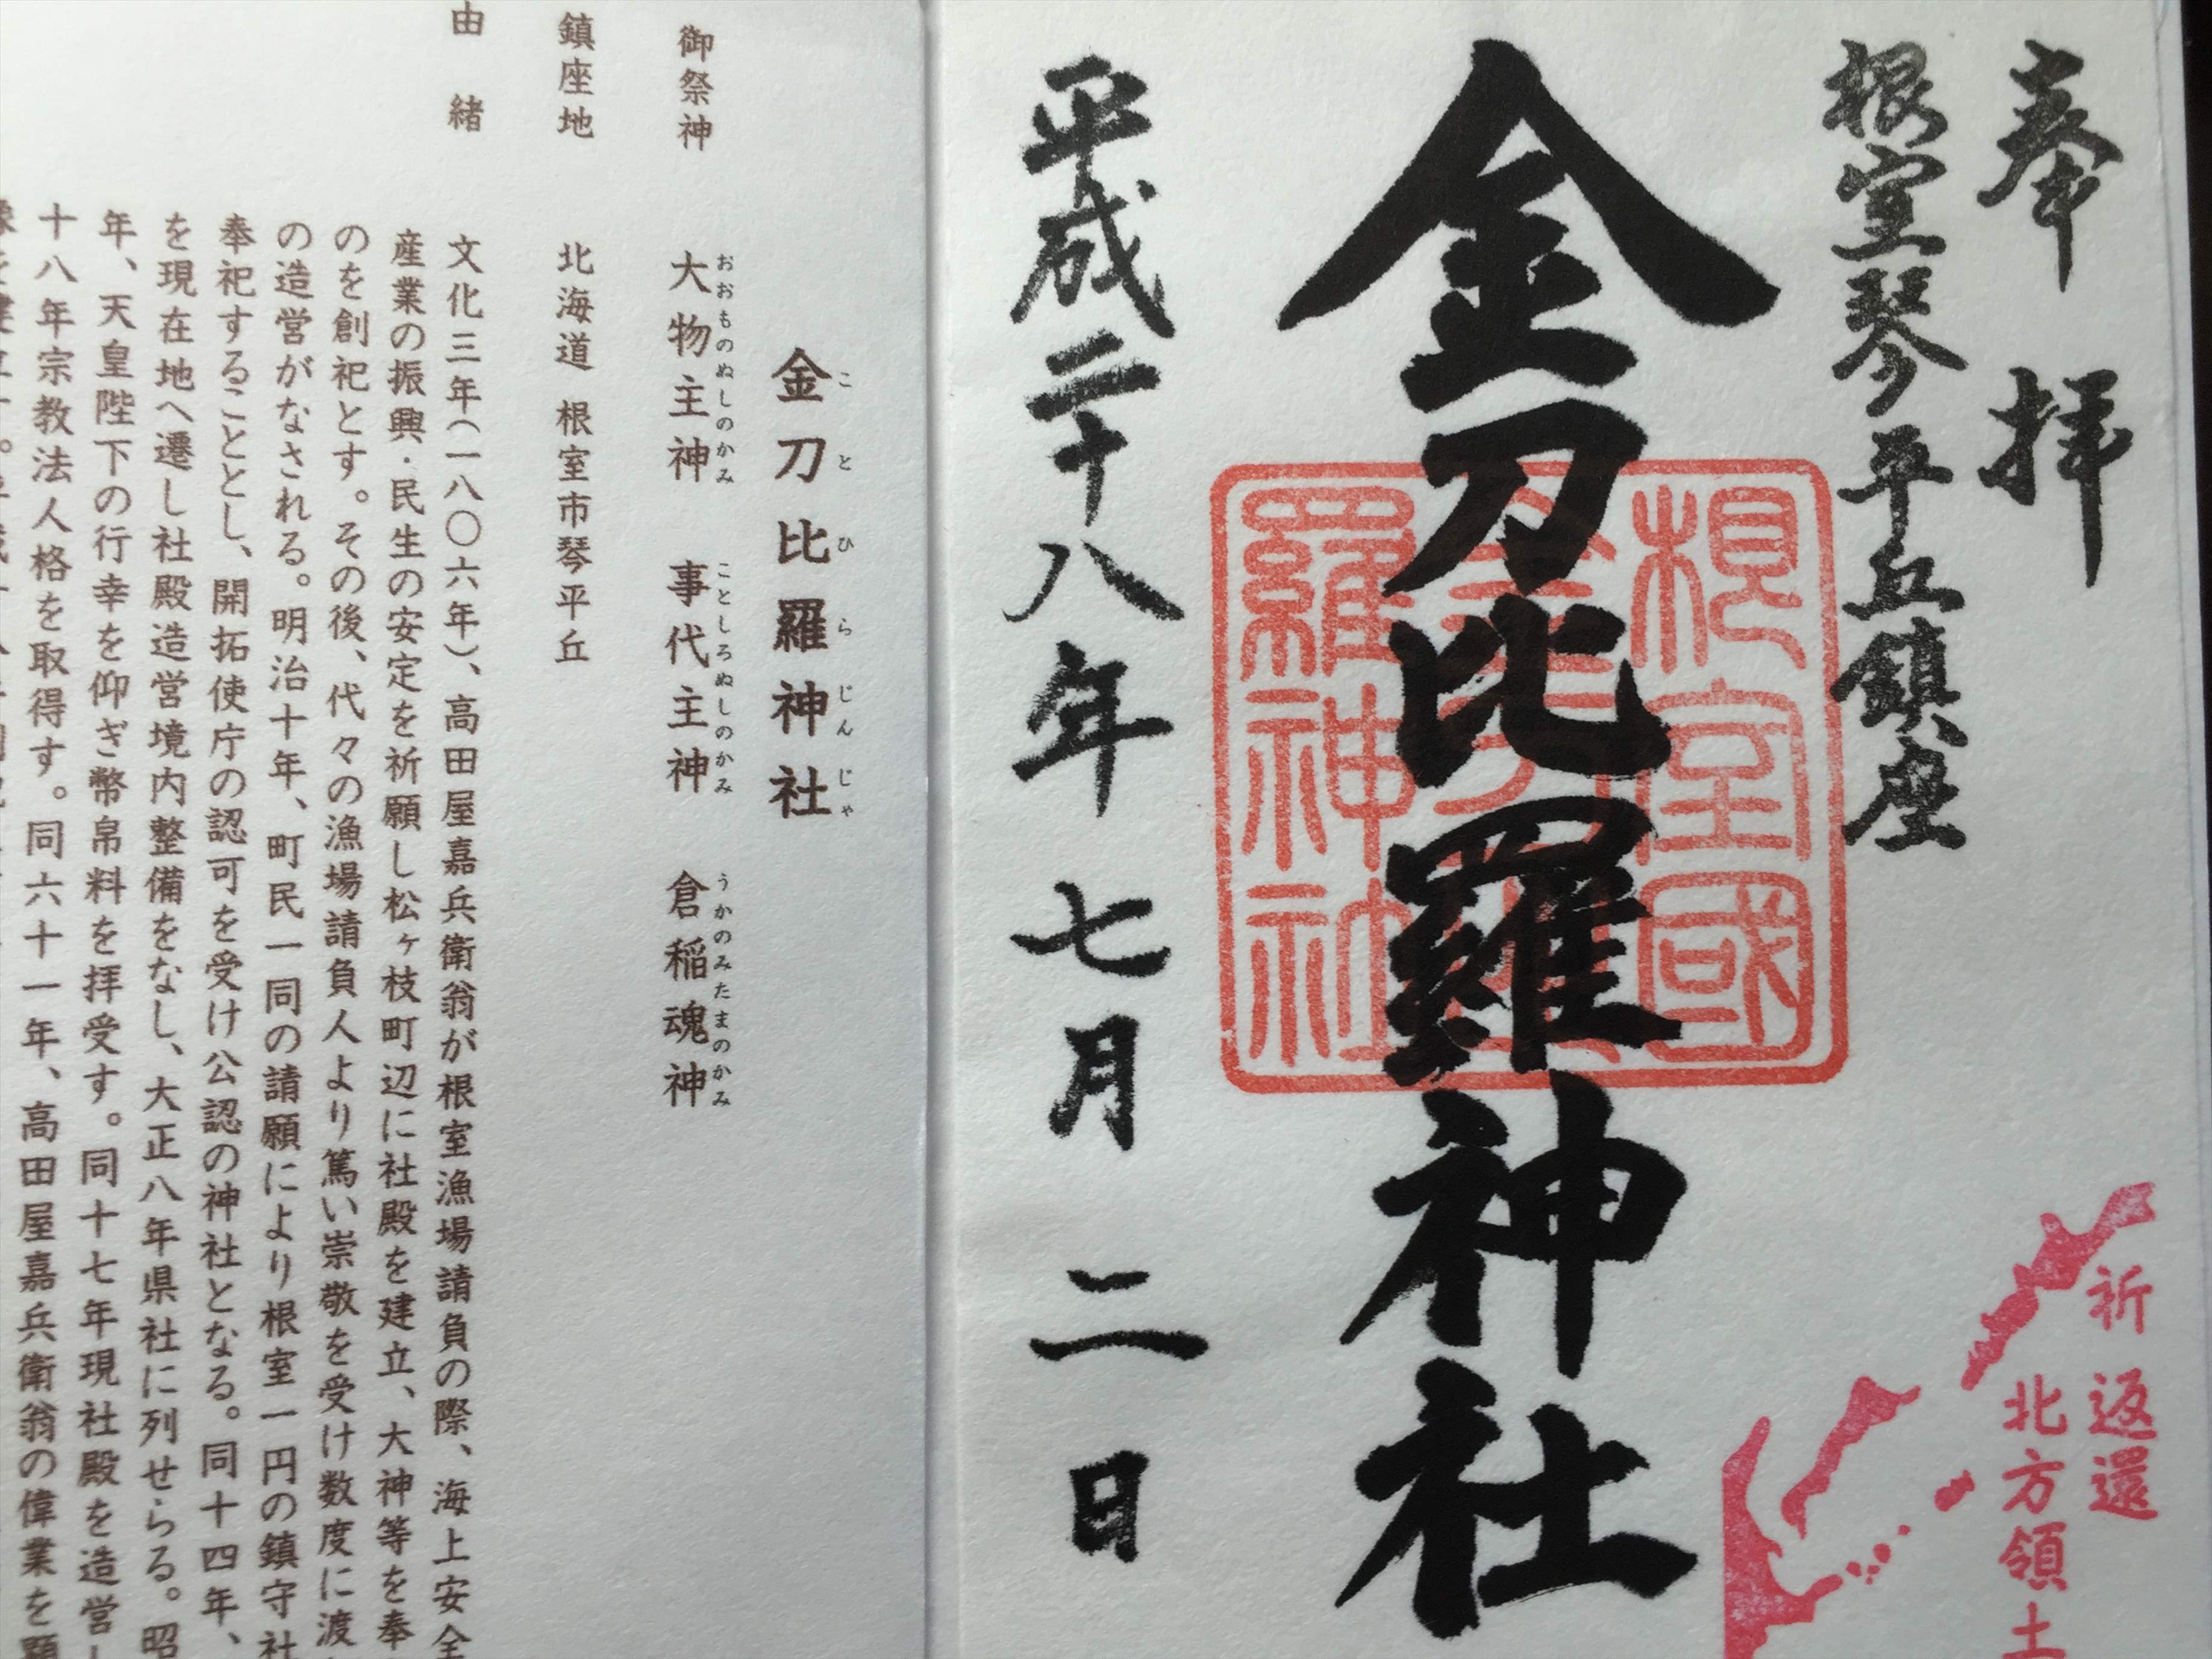 奉拝
根室琴平丘鎮座
金刀比羅神社
根室國
羅神社
平成二十八年七月二日
祈返還
北方領土
金刀比羅神社
ことひらじんじゃ
御祭神 大物主神 事代主神 倉稲魂神
おおものぬしのかみ ことしろぬしのかみ うかのみたまのかみ
鎮座地 北海道 根室市琴平丘
由緒 文化三年(一八〇六年)、高田屋嘉兵衛翁が根室漁場請負の際、海上安全
産業の振興・民生の安定を祈願し松ヶ枝町辺に社殿を建立、大神等を奉
のを創祀とす。その後、代々の漁場請負人より篤い崇敬を受け数度に渡
の造営がなされる。明治十年、町民一同の請願により根室一円の鎮守社
奉祀することとし、開拓使庁の認可を受け公認の神社となる。同十四年、
を現在地へ遷し社殿造営境内整備をなし、大正八年県社に列せらる。昭
年、天皇陛下の行幸を仰ぎ幣帛料を拝受す。同十七年現社殿を造営し
十八年宗教法人格を取得す。同六十一年、高田屋嘉兵衛翁の偉業を顕